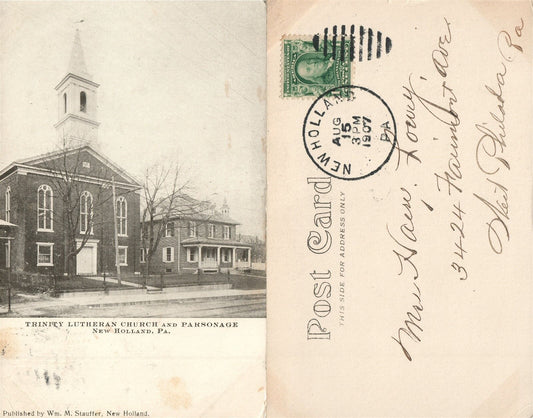 TRINITY LUTHERAN CHURCH AND PARSONAGE
NEW HOLLAND, PA.
Published by Wm. M. Stauffer, New Holland.
NEW HOLLAND
PA
AUG
15
3 PM
1907
Post Card
THIS SIDE FOR ADDRESS ONLY
3424 Fairmont Ave
West Philada Pa